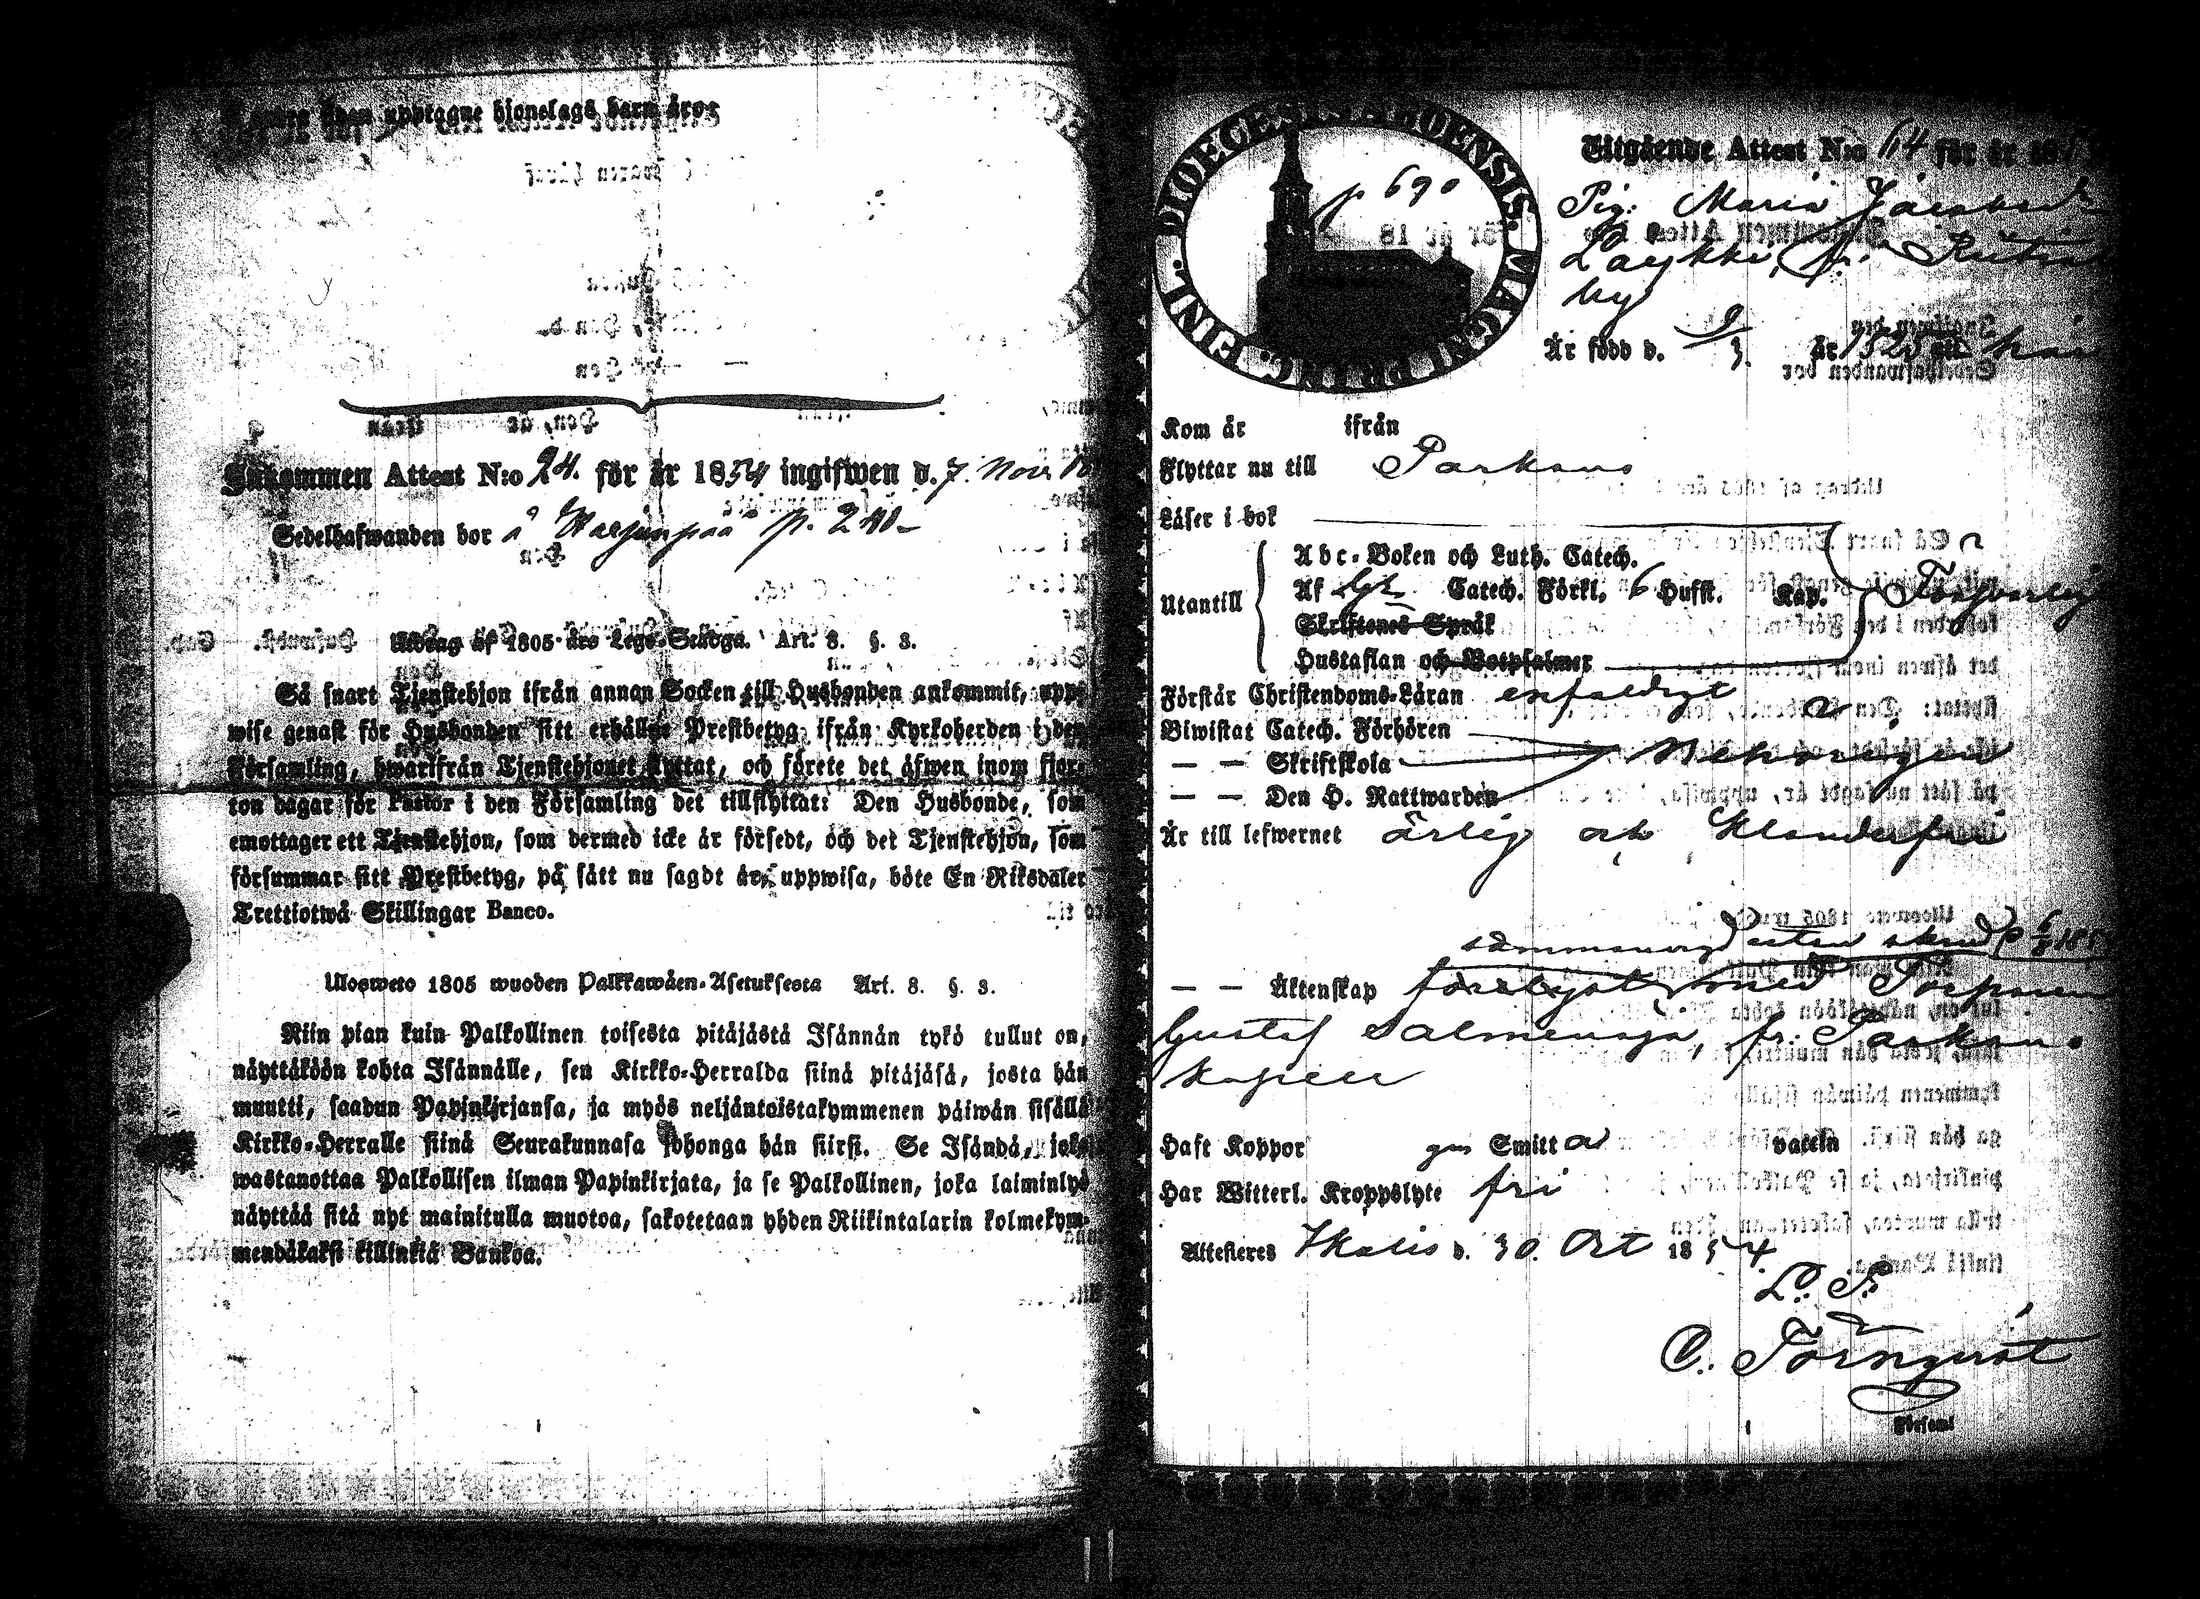 upptagne hjonelags barn äro:
Inkommen Attest N:o 24. för år 1854 ingifwen d. 7. Nov.
Sedelhafwanden bor å Harjunpää p. 240
Utdrag af 1805 års Lego-Stadga. Art. 8. §. 3.
Så snart Tjenstehjon ifrån annan Socken till Husbonden ankommit, upp-
wise genast för Husbonden sitt erhållne Prestbetyg ifrån Kyrkoherden i den
Församling, hwarifrån Tjenstehjonet flyttat, och förete det äfwen inom fjor-
ton dagar för Pastor i den Församling det tillflyttat: Den Husbonde, som
emottager ett Tjenstehjon, som dermed icke är försedt, och det Tjenstehjon, som
försummar sitt Prestbetyg, på sätt nu sagdt är, uppwisa, böte En Riksdaler
Trettiotwå Skillingar Banco.
Ulosweto 1805 wuoden Palkkawäen-Asetuksesta Art. 8. §. 3.
Niin pian kuin Palkollinen toisesta pitäjästä Isännän tykö tullut on,
näyttäköön kohta Isännälle, sen Kirkko-Herralda siinä pitäjäsä, josta hän
muutti, saadun Papinkirjansa, ja myös neljäntoistakymmenen päiwän sisällä
Kirkko-Herralle siinä Seurakunnasa johonga hän siirsi. Se Isändä, joka
wastanottaa Palkollisen ilman Papinkirjata, ja se Palkollinen, joka laiminlyö
näyttää sitä nyt mainitulla muotoa, sakotetaan yhden Riikintalarin kolmekym-
mendäkaksi killinkiä Bankoa.
DIOECESIS ABOENSIS. MAGNI PRINC. FINL.
p 690
Utgående Attest N:o 64 för år 18
Pig. Maria Jacobsd:r
Laykka, fr.
by
Är född d. 9/3. år 182 här
Kom år ifrån
Flyttar nu till Parkano
Läser i bok
Utantill
Abc-Boken och Luth. Catech.
Af Catech. Förkl. 6 Hufst. Kap. Försvarlig
Skriftenes Språk
Hustaflan och Botpsalmer
Förstår Christendoms-Läran enfaldigt
Biwistat Catech. Förhören
— — Skriftskola behörigen
— — Den H. Nattwarden
Är till lefwernet ärlig och klanderfri
sammanvigd
— — Äktenskap förelyst med Torparen
Gustaf Salmensaja, fr. Parkano
kapell
Haft Koppor gm Smitta vattin
Har Witterl. Kroppslyte fri
Attesteres Ikalis d. 30. Oct 1854
L. S.
C. Törnqvist
Församl